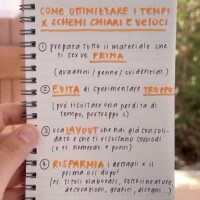 COME OTTIMIZZARE I TEMPI
X SCHEMI CHIARI E VELOCI
① prepara tutto il materiale che
ti serve PRIMA
(quaderni / penne / evidenziat.)
② EVITA di sperimentare TROPPO
(può risultare una perdita di
tempo, purtroppo :)
③ usa LAYOUT che hai già consoli-
dato e che ti risultano comodi
(x es. numeraz. o punti)
④ RISPARMIA i dettagli x il
prima o il dopo!
(es. titoli elaborati, sottolineature,
decorazioni, grafici, disegni...)